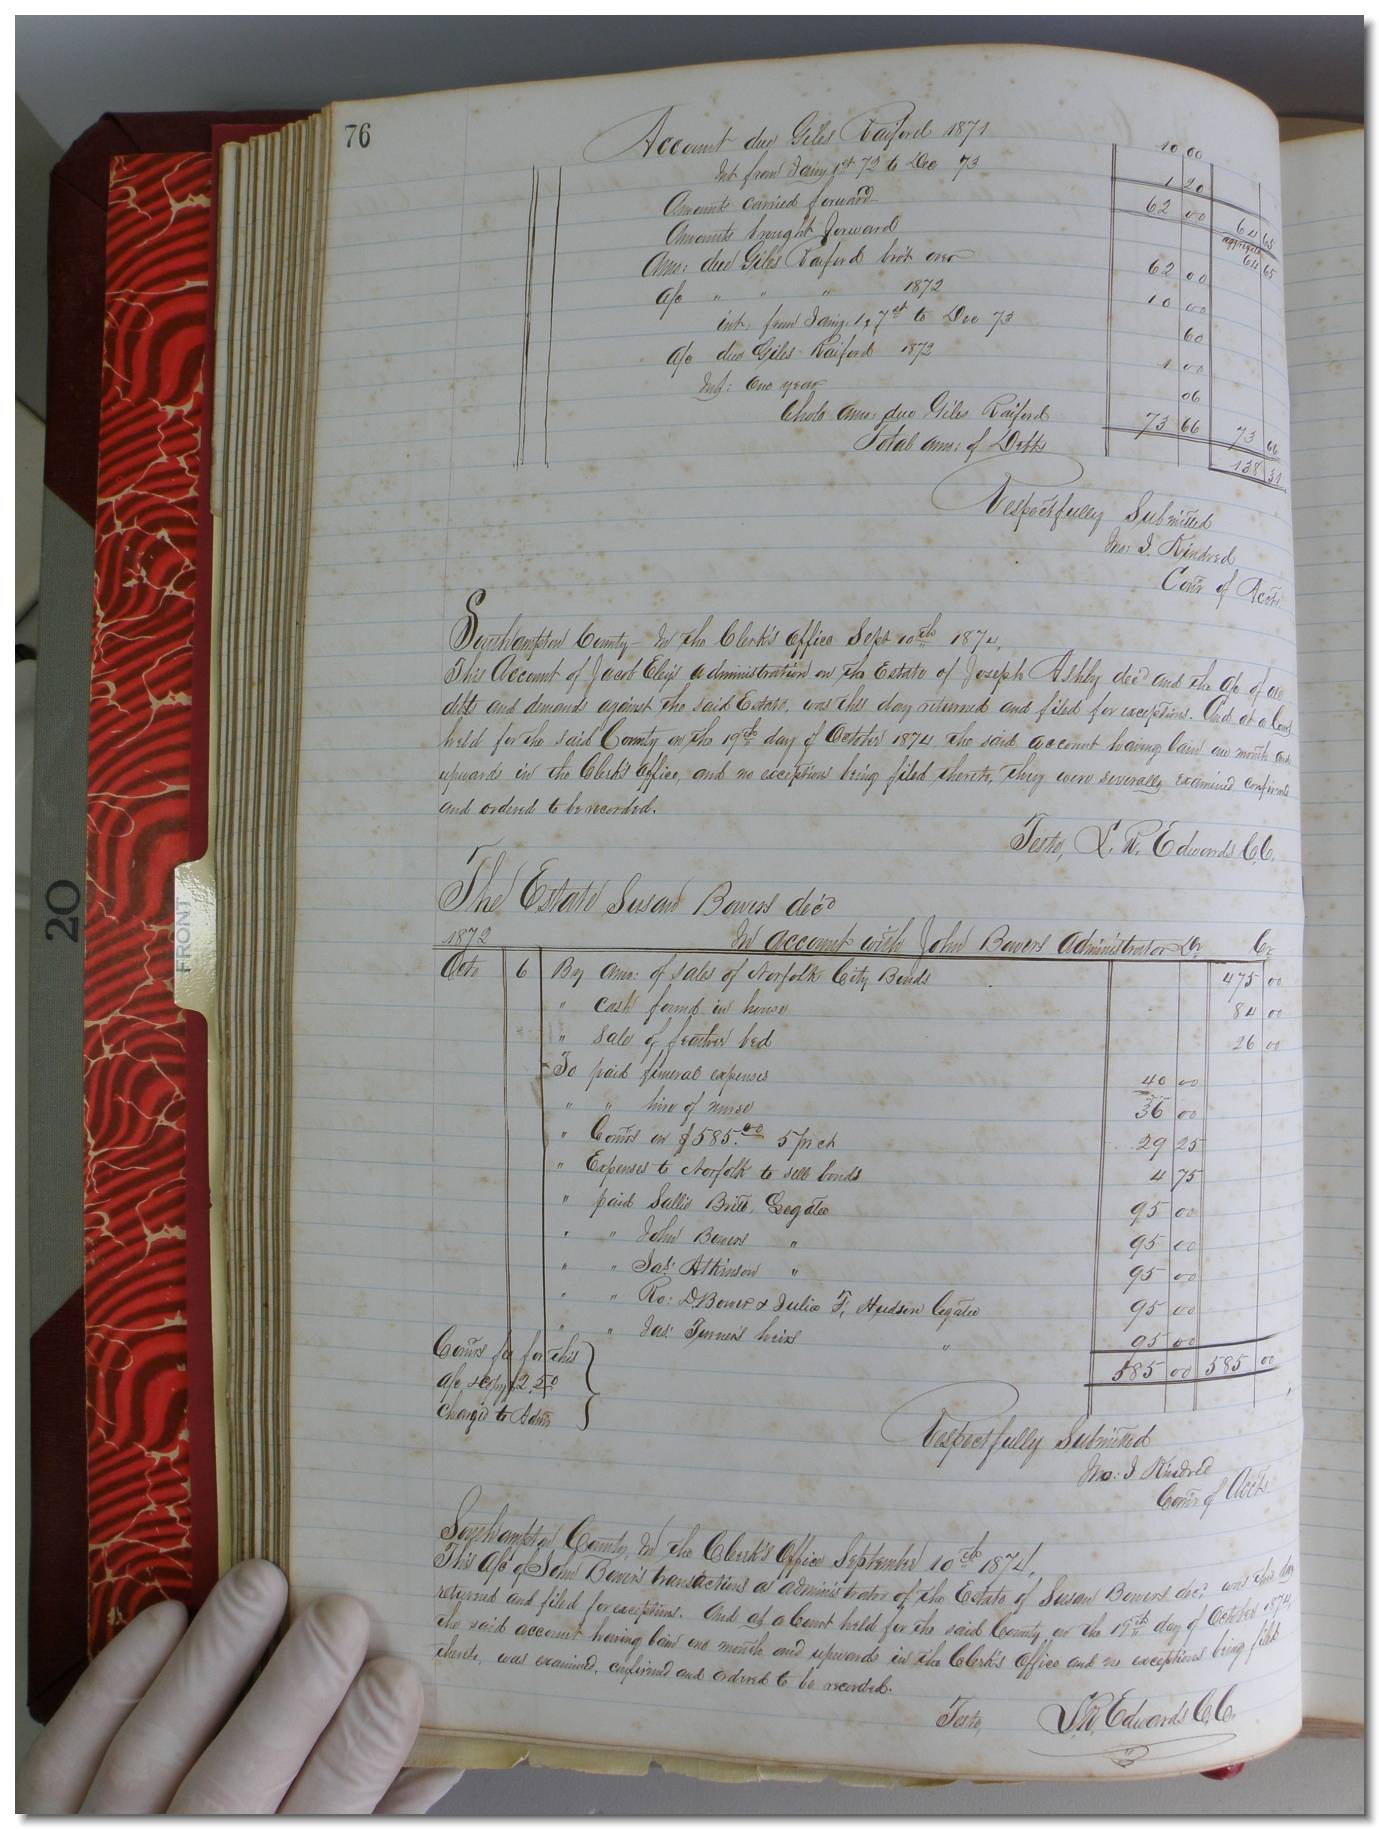 76
Account due Giles Raiford 1871 10 00
Int from Jany 1st 72 to Dec 73 1 20
Amounts carried forward 62 00 64 65
Amounts brought forward aggregate 64 65
Amo: due Giles Raiford bro't over 62 00
a/c " " " 1872 10 00
int: from Jany. 1, 7st to Dec 73 60
a/c due Giles Raiford 1872 1 00
Int: One year 06
Whole amo: due Giles Raiford 73 66 73 66
Total amo: of Debts 138 31
Respectfully Submitted
Jno: I. Kindred
Comr of Accts.
Southampton County In the Clerk's Office Sept 10th 1874,
This Account of Jacob Eley's administration on the Estate of Joseph Ashby dec'd and the a/c of
debts and demands against the said Estate, was this day returned and filed for exceptions. And at a Court
held for the said County on the 19th day of October 1874 the said account having lain one month and
upwards in the Clerk's Office, and no exceptions being filed thereto, they were severally examined confirmed
and ordered to be recorded.
Teste, L. R. Edwards C.C.
The Estate Susan Bowers dec'd
1872 In account with John Bowers Administrator Dr. Cr.
Octo 6 By amo: of sales of Norfolk City Bonds 475 00
" cash found in house 84 00
" sale of feather bed 26 00
To paid funeral expenses 40 00
" " hire of nurse 36 00
" Comrs on $585.00 5 pr ct 29 25
" Expenses to Norfolk to sell bonds 4 75
" paid Sallie Britt, Legatee 95 00
" " John Bowers " 95 00
" " Jas: Atkinson " 95 00
" " Ro: D Bower & Julia F. Hudson legatee 95 00
" " Jas: Turner's heirs " 95 00
Comrs fee for this
a/c & copy $2.50
charg'd to Admr
585 00 585 00
Respectfully Submitted
Jno: I Kindred
Comr of Accts.
Southampton County, In the Clerk's Office September 10th 1874,
This a/c of John Bowers transactions as administrator of the Estate of Susan Bowers dec'd was this day
returned and filed for exceptions. And at a Court held for the said County on the 19th day of October 1874,
the said account having lain one month and upwards in the Clerk's Office and no exceptions being filed
thereto, was examined, confirmed and ordered to be recorded.
Teste, L. R. Edwards C.C.
20
FRONT